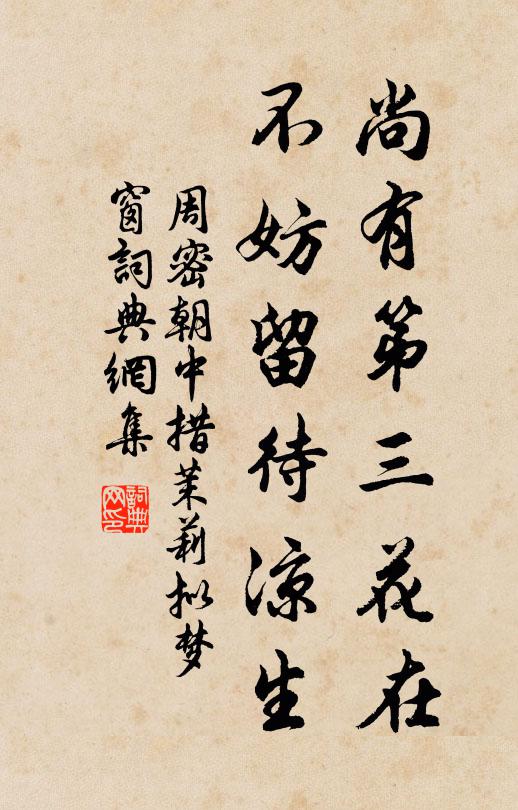 尚有第三花在
不妨留待涼生
周密朝中措茉莉拟梦
窗詞典網集
詞典
网印